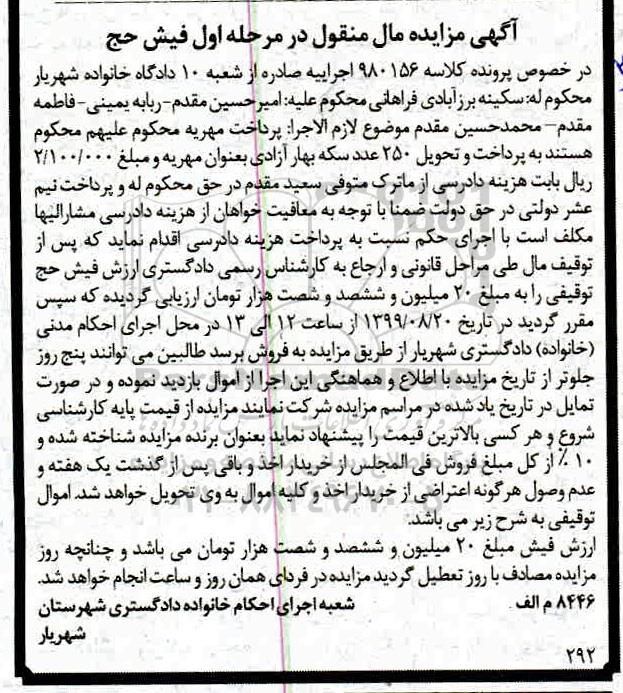 آگهی مزایده مال منقول در مرحله اول فیش حج
در خصوص پرونده کلاسه ۹۸۰۱۵۶ اجراییه صادره از شعبه ۱۰ دادگاه خانواده شهریار
محکوم له: سکینه برزآبادی فراهانی محکوم علیه: امیرحسین مقدم- ربابه یمینی- فاطمه
مقدم- محمدحسین مقدم موضوع لازم الاجرا: پرداخت مهریه محکوم علیهم محکوم
هستند به پرداخت و تحویل ۲۵۰ عدد سکه بهار آزادی بعنوان مهریه و مبلغ ۲/۱۰۰/۰۰۰
ریال بابت هزینه دادرسی از ماترک متوفی سعید مقدم در حق محکوم له و پرداخت نیم
عشر دولتی در حق دولت ضمنا با توجه به معافیت خواهان از هزینه دادرسی مشارالیها
مکلف است با اجرای حکم نسبت به پرداخت هزینه دادرسی اقدام نماید که پس از
توقیف مال طی مراحل قانونی و ارجاع به کارشناس رسمی دادگستری ارزش فیش حج
توقیفی را به مبلغ ۲۰ میلیون و ششصد و شصت هزار تومان ارزیابی گردیده که سپس
مقرر گردید در تاریخ ۱۳۹۹/۰۸/۲۰ از ساعت ۱۲ الی ۱۳ در محل اجرای احکام مدنی
(خانواده) دادگستری شهریار از طریق مزایده به فروش برسد طالبین می توانند پنج روز
جلوتر از تاریخ مزایده با اطلاع و هماهنگی این اجرا از اموال بازدید نموده و در صورت
تمایل در تاریخ یاد شده در مراسم مزایده شرکت نمایند مزایده از قیمت پایه کارشناسی
شروع و هر کسی بالاترین قیمت را پیشنهاد نماید بعنوان برنده مزایده شناخته شده و
۱۰ ٪ از کل مبلغ فروش فی المجلس از خریدار اخذ و باقی پس از گذشت یک هفته و
عدم وصول هرگونه اعتراضی از خریدار اخذ و کلیه اموال به وی تحویل خواهد شد. اموال
توقیفی به شرح زیر می باشد.
ارزش فیش مبلغ ۲۰ میلیون و ششصد و شصت هزار تومان می باشد و چنانچه روز
مزایده مصادف با روز تعطیل گردید مزایده در فردای همان روز و ساعت انجام خواهد شد.
۸۴۴۶ م الف شعبه اجرای احکام خانواده دادگستری شهرستان
شهریار
۲۹۲